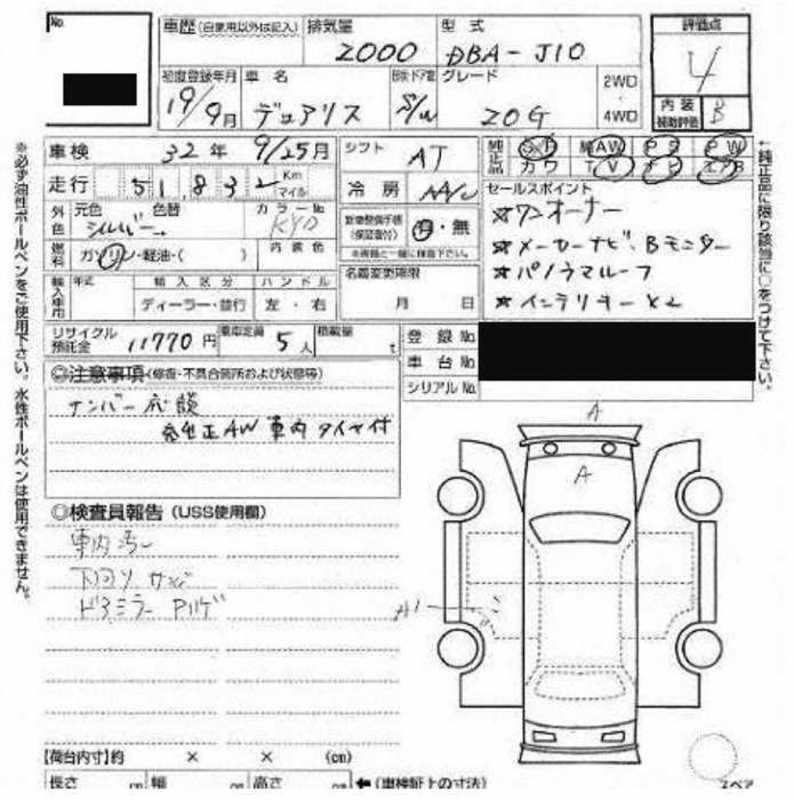 No.
車歴 (自家用以外は記入) 排気量 型式 評価点
2000 DBA-J10 4
初度登録年月 車名 グレード 2WD
19/9月 デュアリス S/W 20G 4WD
内装補助評価 B
車検 32年 9/25月 シフト AT
走行 51,832 Km マイル 冷房 AA/C
純正品 SR 純AW PS PW
カワ TV エB
セールスポイント
外色 元色 色替 カラーNo
シルバー KY0
新車整備手帳(保証書付) 有・無
☆ワンオーナー
☆メーカーナビ、Bモニター
☆パノラマルーフ
☆インテリキー×2
燃料 ガソリン・軽油・( ) 内装色
輸入車用 年式 輸入区分 ハンドル
ディーラー・並行 左・右
名義変更期限
月 日
リサイクル預託金 11770円 乗車定員 5人 積載量 t
登録No.
車台No.
シリアルNo.
◎注意事項(修復・不具合箇所および状態等)
ナンバー応談
純正AW 車内 タイヤ付
A
A
◎検査員報告(USS使用欄)
車内汚レ
下回りサビ
ドアミラー Aハゲ
A1
【荷台内寸】約 × × (cm)
長さ cm 幅 cm 高さ cm ←(車検証上の寸法)
スペア
※必ず油性ボールペンをご使用下さい。水性ボールペンは使用できません。
←純正品に限り該当に○をつけて下さい。